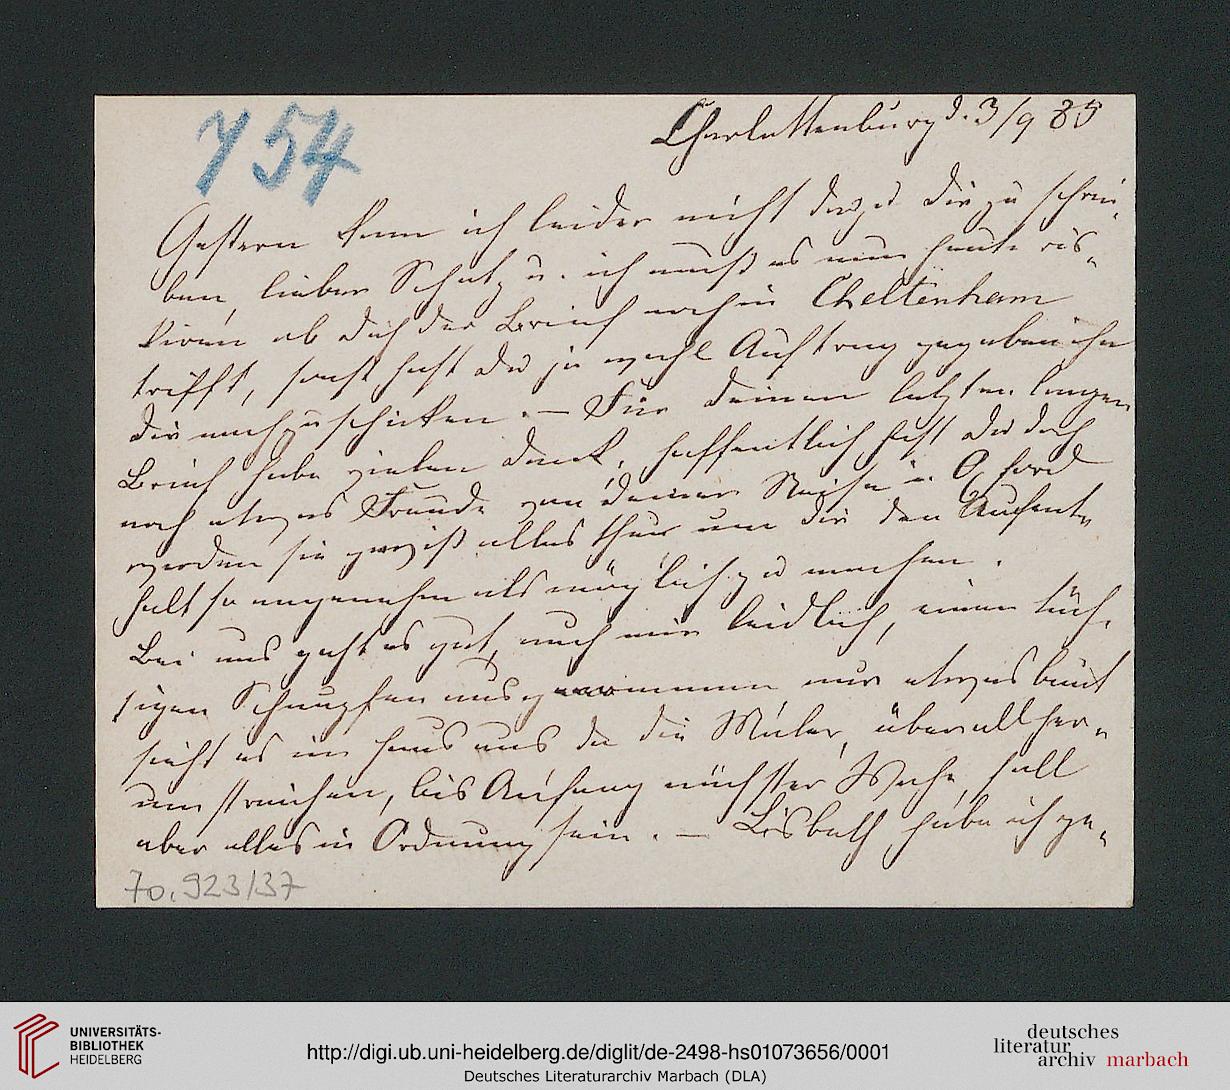 754
Charlottenburg d. 3/9 85
Gestern kam ich leider nicht dazu Dir zu schrei-
ben, lieber Schatz u. ich muß es nun heute ris-
kiren ob Dich der Brief noch in Cheltenham
trifft, sonst hast Du ja wohl Auftrag gegeben ihn
Dir nachzuschicken. – Für Deinen letzten langen
Brief habe vielen Dank, hoffentlich hast Du doch
noch etwas Freude von Deiner Reise u. Oxford
werden sie gewiß alles thun um Dir den Aufent-
halt so angenehm als möglich zu machen.
Bei uns geht es gut, auch mir leidlich, einen tüch-
tigen Schnupfen ausgenommen nur etwas bunt
sieht es im Haus aus da die Maler, überall her-
um streichen, bis Anfang nächster Woche, soll
aber alles in Ordnung sein. – Lisbeth habe ich ge-
70.923/37
UNIVERSITÄTS-
BIBLIOTHEK
HEIDELBERG
http://digi.ub.uni-heidelberg.de/diglit/de-2498-hs01073656/0001
Deutsches Literaturarchiv Marbach (DLA)
deutsches
literatur
archiv marbach